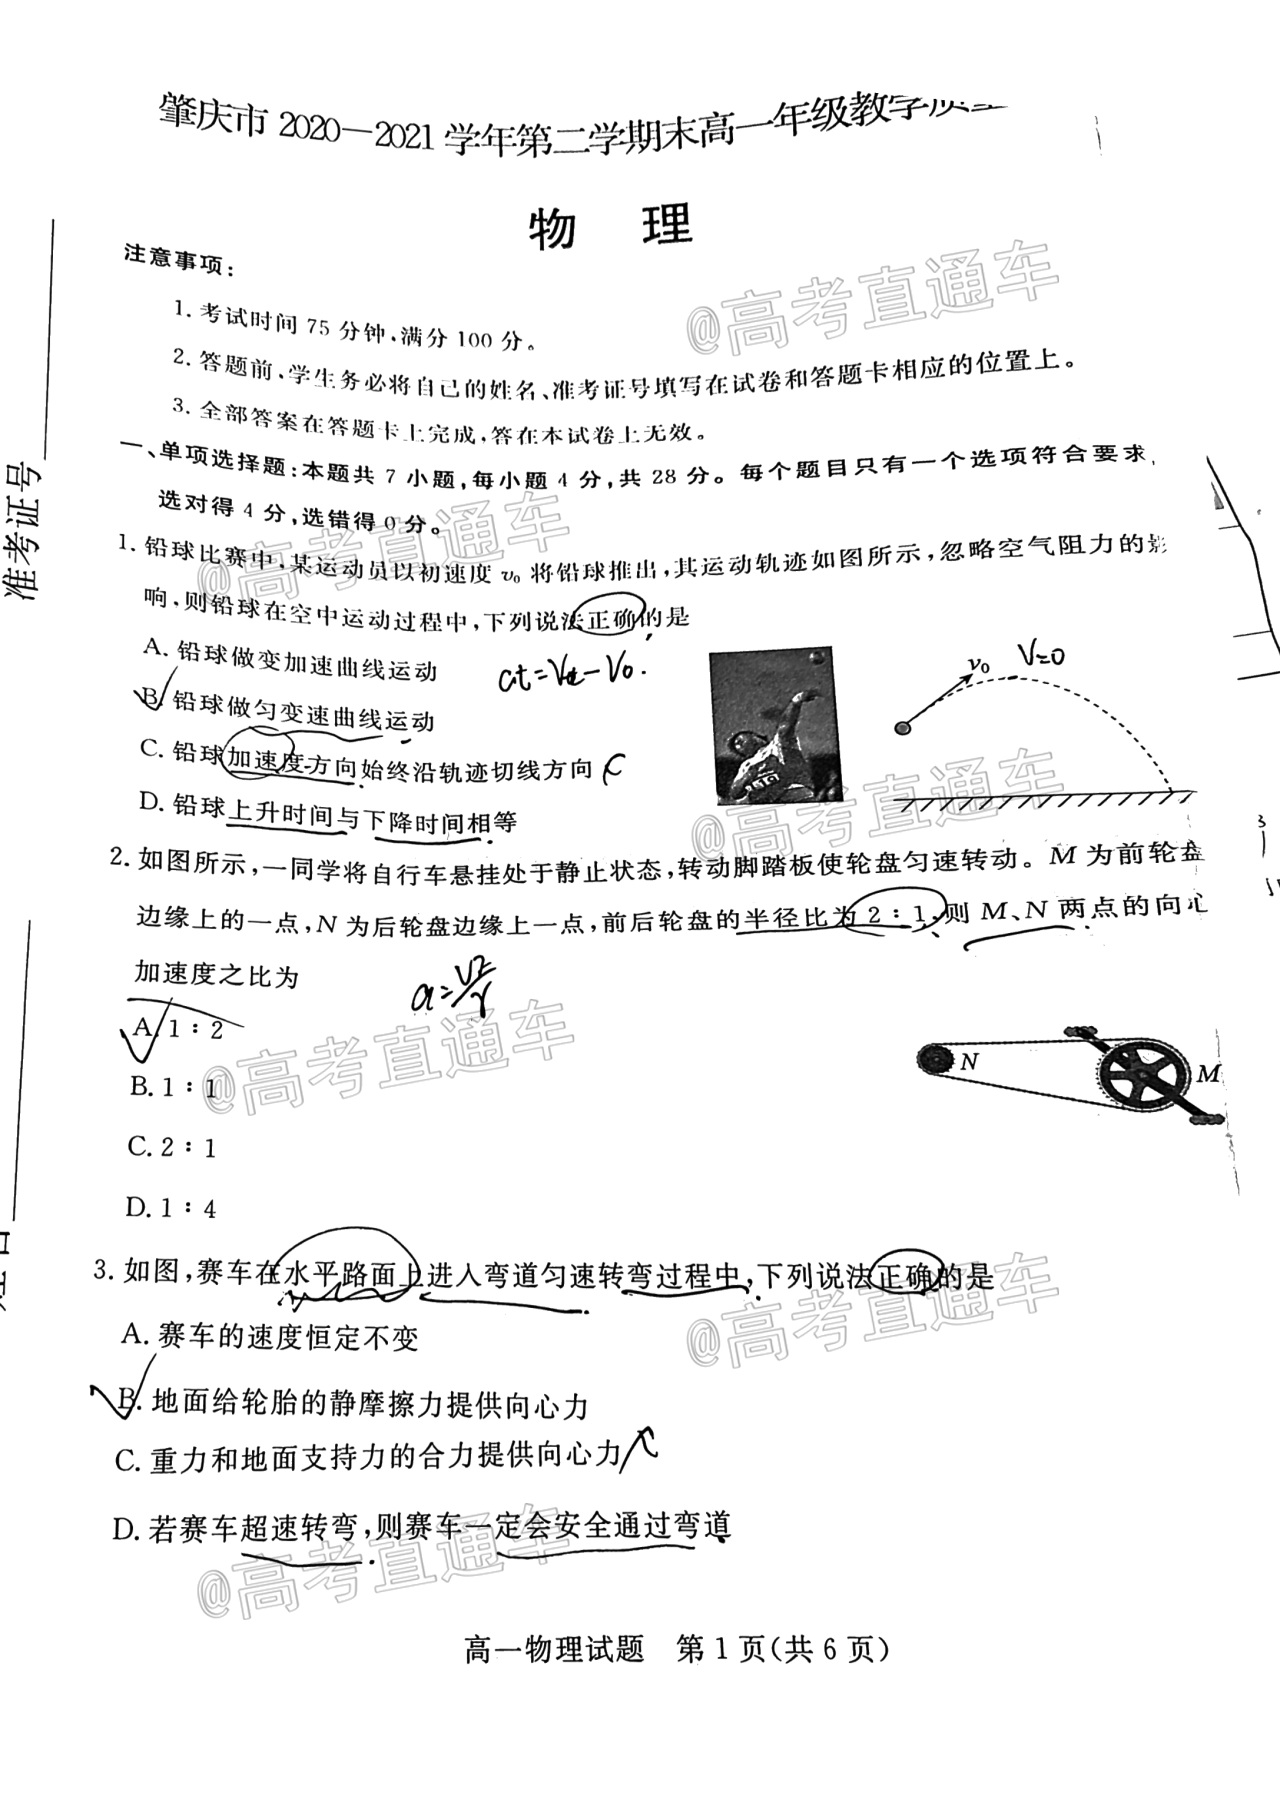 肇庆市 2020—2021 学年第二学期末高一年级教学质
物 理
注意事项:
1. 考试时间 75 分钟,满分 100 分。
2. 答题前,学生务必将自己的姓名、准考证号填写在试卷和答题卡相应的位置上。
3. 全部答案在答题卡上完成,答在本试卷上无效。
一、单项选择题:本题共 7 小题,每小题 4 分,共 28 分。每个题目只有一个选项符合要求,
选对得 4 分,选错得 0 分。
1. 铅球比赛中,某运动员以初速度 v₀ 将铅球推出,其运动轨迹如图所示,忽略空气阻力的影
响,则铅球在空中运动过程中,下列说法正确的是
A. 铅球做变加速曲线运动
at=Vt-V0.
v₀
V=0
B. 铅球做匀变速曲线运动
C. 铅球加速度方向始终沿轨迹切线方向
D. 铅球上升时间与下降时间相等
2. 如图所示,一同学将自行车悬挂处于静止状态,转动脚踏板使轮盘匀速转动。M 为前轮盘
边缘上的一点,N 为后轮盘边缘上一点,前后轮盘的半径比为 2∶1,则 M、N 两点的向心
加速度之比为
a=V²/r
A. 1∶2
B. 1∶1
C. 2∶1
D. 1∶4
N
M
3. 如图,赛车在水平路面上进入弯道匀速转弯过程中,下列说法正确的是
A. 赛车的速度恒定不变
B. 地面给轮胎的静摩擦力提供向心力
C. 重力和地面支持力的合力提供向心力
D. 若赛车超速转弯,则赛车一定会安全通过弯道
高一物理试题 第 1 页(共 6 页)
准考证号
@高考直通车
@高考直通车
@高考直通车
@高考直通车
@高考直通车
@高考直通车